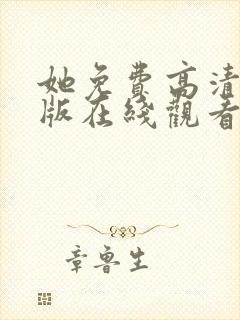 她免費高清
版在綫觀看
章魯生